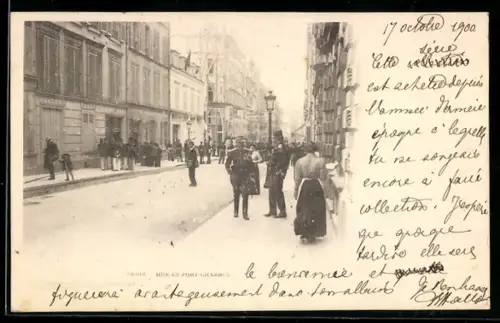 17 octobre 1900
Cette série
est achetée depuis
l'année dernière
époque à laquelle
tu ne songeais
encore à faire
collection. J'espère
que quoique
tardive elle sera
la bienvenue et
figurera avantageusement dans ton album
PARIS RUE ET PORT